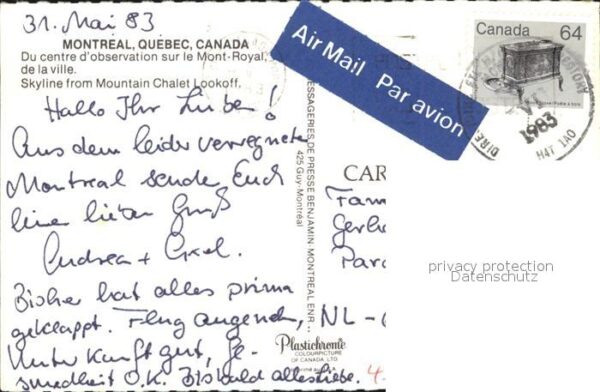 31. Mai 83
MONTREAL, QUÉBEC, CANADA
Du centre d'observation sur le Mont-Royal,
de la ville.
Skyline from Mountain Chalet Lookoff.
Hallo Ihr Lieben!
Aus dem leider verregneten
Montreal sende Euch
einen lieben Gruß
Andrea +
Bisher hat alles prima
geklappt. Flug angenehm,
Unterkunft gut, Ge-
sundheit O.K. Bis bald alles Liebe.
MESSAGERIES DE PRESSE BENJAMIN-MONTREAL ENR
425 Guy-Montréal
Plastichrome
COLOURPICTURE
OF CANADA LTD.
Air Mail Par avion
Canada 64
1983
H4T 1A0
CAR
Fam
Gerh
Par
NL -
4
privacy protection
Datenschutz